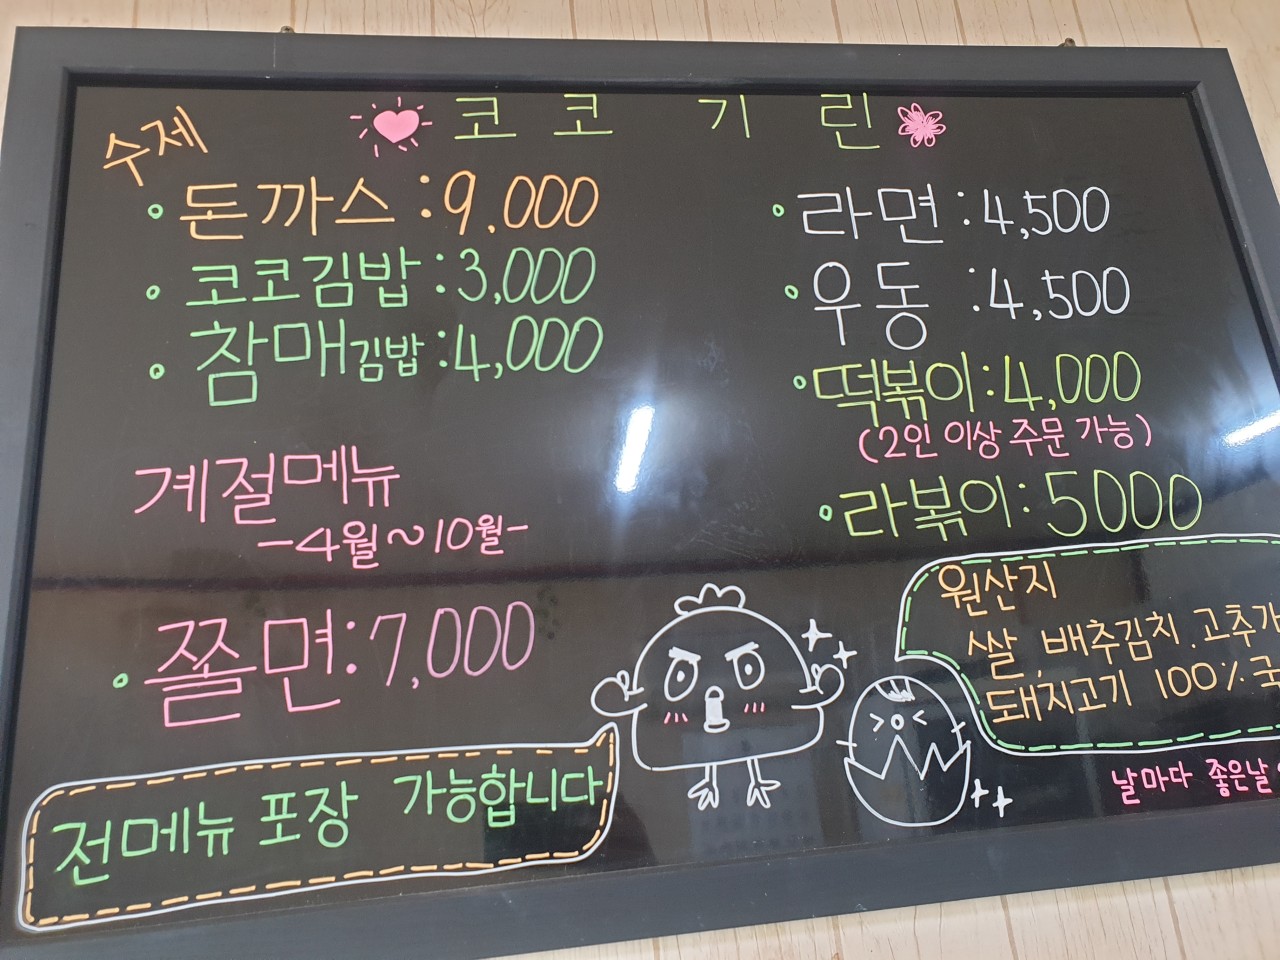 코코기린
수제
돈까스 : 9.000
코코김밥 : 3,000
참매김밥 : 4,000
계절메뉴
-4월~10월-
쫄면 : 7,000
전메뉴 포장 가능합니다
라면 : 4,500
우동 : 4,500
떡볶이 : 4,000
(2인 이상 주문 가능)
라볶이 : 5000
원산지
쌀, 배추김치. 고추가
돼지고기 100% 국
날마다 좋은날